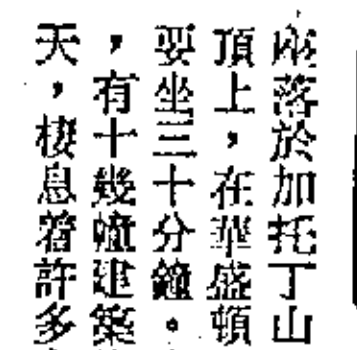 座落於加托丁山
頂上，在華盛頓
要坐三十分鐘。
，有十幾幢建築
天，棲息着許多